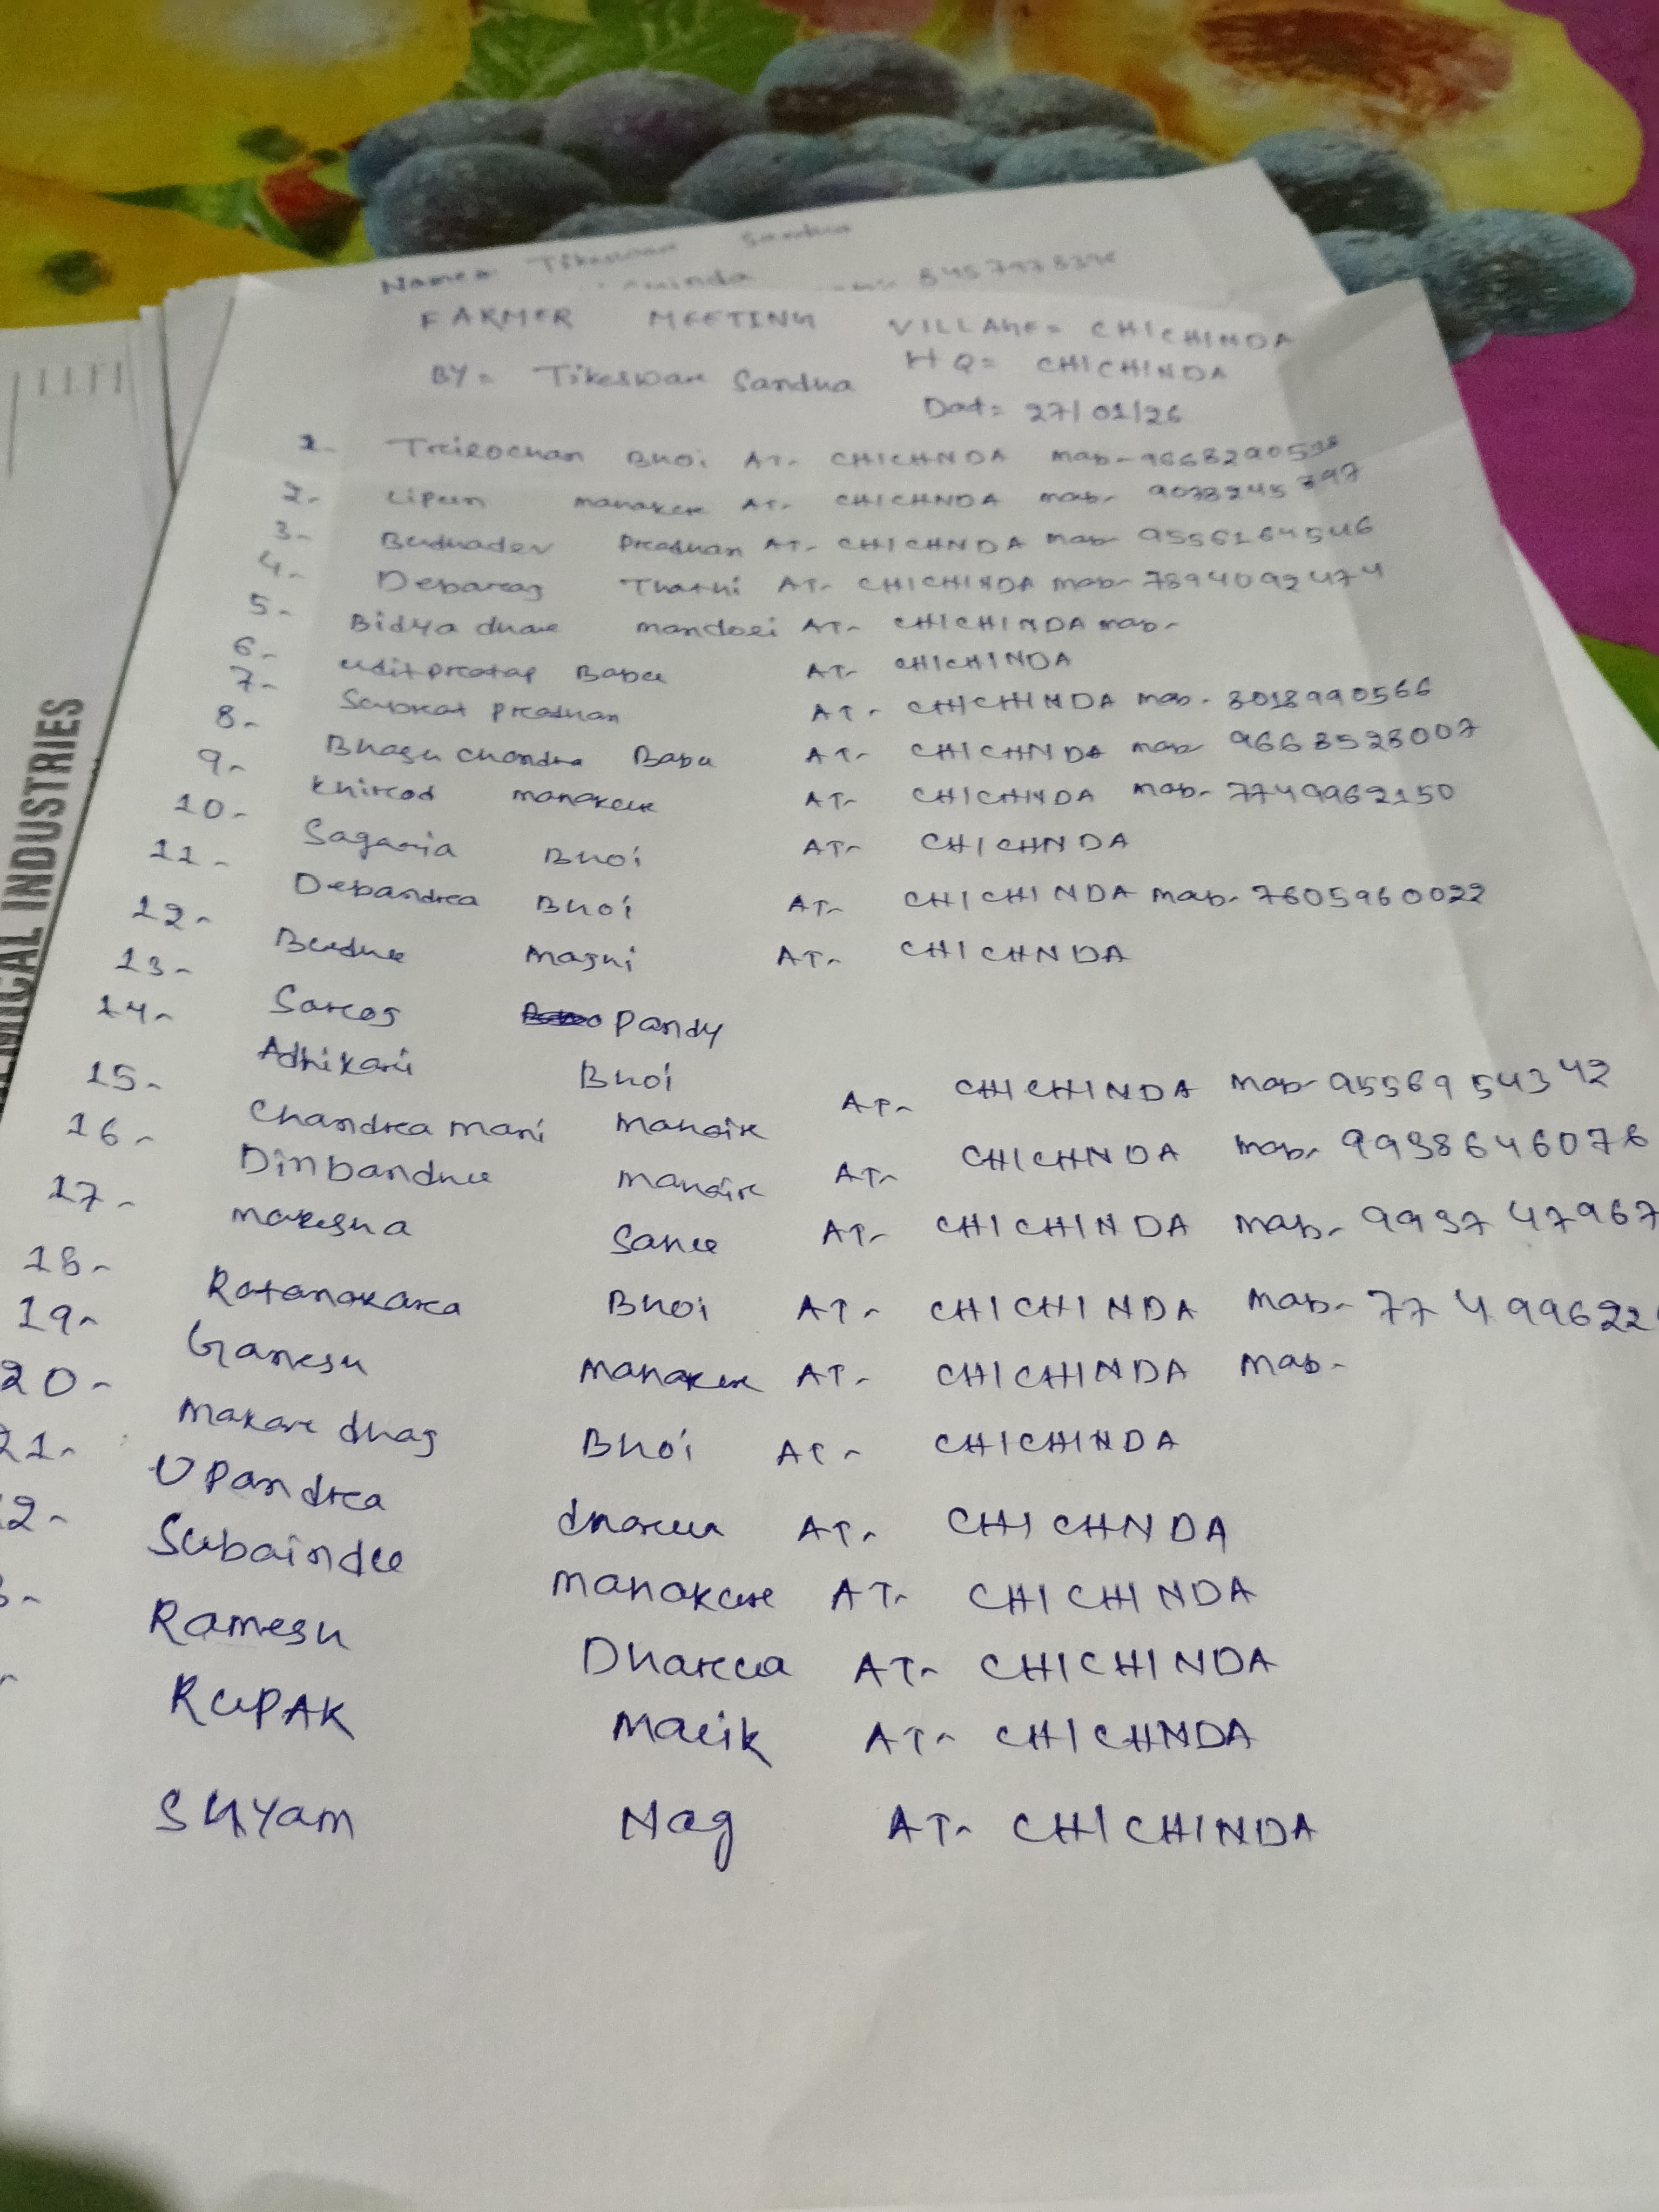 Name= Tikeswar Sandha
FARMER MEETING VILLAGE= CHICHINDA
HQ= CHICHINDA
BY= Tikeswar Sandha
Dat= 27/01/26
1- Trilochan Bhoi AT- CHICHNDA Mob-9668290538
2- Lipun manaker AT- CHICHNDA mob- 9078245397
3- Budhadev Pradhan AT- CHICHNDA mob- 9556164546
4- Debaraj Thathi AT- CHICHINDA mob- 7894092474
5- Bidya dhar mandoei AT- CHICHINDA mob-
6- uditpratap Babu AT- CHICHINDA
7- Subrat Pradhan AT- CHICHINDA mob-
8- Bhagu chandra Babu AT- CHICHNDA mob- 9668528007
9- Khirod manaker AT- CHICHNDA mob- 7749962150
10- Sagaria Bhoi AT- CHICHNDA
11- Debandra Bhoi AT- CHICHINDA mob- 7605960022
12- Budhu Majhi AT- CHICHNDA
13- Saroj Pandy
14- Adhikari Bhoi
15- Chandra mani Mahair AT- CHICHINDA Mob- 9556954342
16- Dinbandhu Mahair AT- CHICHNDA Mob- 9938646076
17- Makesha Sahu AT- CHICHINDA Mob- 993747967
18- Ratanakara Bhoi AT- CHICHINDA Mob- 77499622
19- Ganesh Manaker AT- CHICHINDA Mob-
20- Makar dhaj Bhoi AT- CHICHINDA
21- Upandra dharua AT- CHICHNDA
2- Subaindu Manaker AT- CHICHINDA
Ramesh Dharua AT- CHICHINDA
RUPAK Malik AT- CHICHNDA
SHYAM Nag AT- CHICHINDA
EMICAL INDUSTRIES